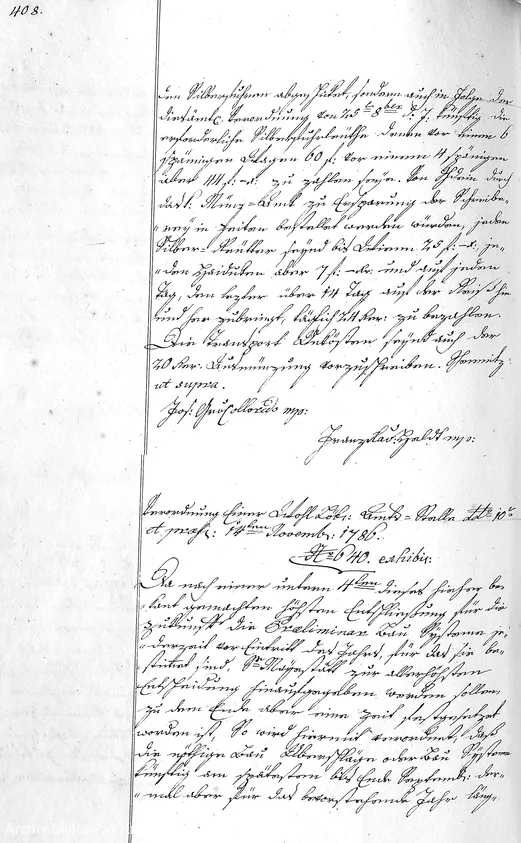 408.
den Silberfuhren abgeschicket, sondern auch in Folge der
Verordnung von 25t 8ber d: J: künftig die
erforderliche Silberfuhrleuthe denen vor einem 6
spänigen Wagen 60 f: vor einem 4 spänigen
aber 44 f: zu zahlen seye. Von
das k: Münz-Amt zu Ersparung der Schreibe-
rey in Zeiten bestellet werden würden, jeden
Silber- Reutter seynd bis Wienn 25 f: je-
den Haiduken aber 7 f: und auf jeden
Tag, den letzter über 14 Tag auf der Reiß hin
und her zubringt, täglich 24 kr: zu bezahlen.
Die Transport Unkösten seynd auch der
20 kr: Ausmünzung vorzuschreiben. Schemnitz
ut supra.
Jos: Gr: Colloredo mp:
Franz mp:
Verordnung Einer Wohl Löbl: Amts-Stelle ddto 10t
et præs: 14ten Novembr: 1786.
No 640. exhibit:
Da nach einer unterm 4ten dieses hieher be-
kant gemachten höchsten Entschließung für die
Zukunft die Præliminar Bau Systeme je-
derzeit vor Eintritt des Jahrs, für das sie be-
stimt sind, Sr Mayestätt zur allerhöchsten
Entscheidung hinaufgegeben werden sollen,
zu dem Ende aber eine Zeit festgesetzet
worden ist, So wird hiemit verordnet, daß
die nöthige Bau Überschläge oder Bau System
künftig am spätesten bis Ende Septemb: der-
mal aber für das bevorstehende Jahr läng-